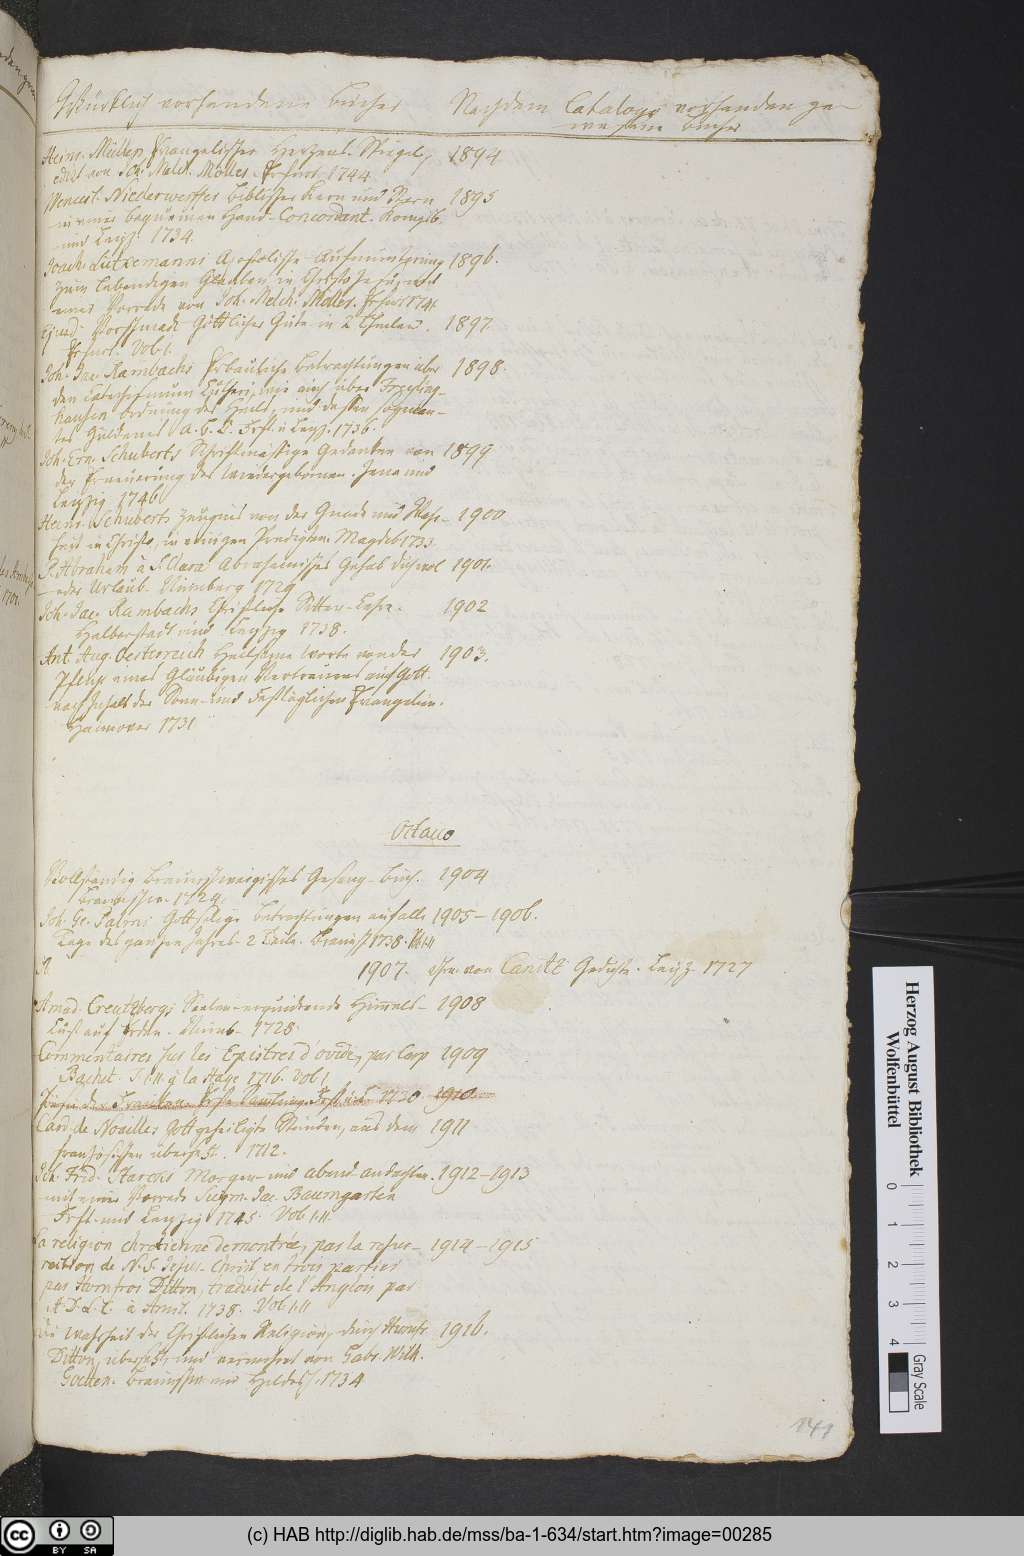 Würcklich vorhandene Bücher
Nach dem Catalogo vorhanden ge-
wesene Bücher
Heinr. Müllers Evangelischer Hertzens-Spiegel, 1894
edirt von Joh. Melch. Möller. Erfurt 1744
Wencesl. Niederwerffers Biblischer Kern und Stern 1895
in einer bequemen Hand-Concordant. Königsb.
und Leipz. 1734.
Joach. Lütkemanns Apostolische Aufmunterung 1896.
zum lebendigen Glauben in Christo Jesu, nebst
einer Vorrede von Joh. Melch. Möller. Erfurt 1741
Ejusd. Vorschmack Göttlicher Güte in 2 Theilen. 1897.
Erfurt. Vol. 1.
Joh. Jac. Rambachs Erbauliche Betrachtungen über 1898.
den Catechismum Lutheri, wie auch über Freyling-
hausen Ordnung des Heils, und dessen sogenan-
tes Güldenes A. B. C. Frft. u. Leipz. 1736.
Joh. Ern. Schuberts Schrifftmässige Gedancken von 1899
der Erneuerung der Wiedergebornen. Jena und
Leipzig 1746
Heinr. Schuberts Zeugnis von der Gnade und Wahr- 1900
heit in Christo, in einigen Predigten. Magdeb. 1733.
P. Abraham à S. Clara Abrahamisches Gehab dich wol 1901.
oder Urlaub. Nürnberg 1729
Joh. Jac. Rambachs Christliche Sitten-Lehre. 1902
Halberstadt und Leipzig 1738.
Ant. Aug. Oesterreich Heilsame Worte von der 1903.
Pflicht eines Gläubigen Vertrauens auf Gott
nach Inhalt der Sonn- und Festtäglichen Evangelien.
Hannover 1731
Octavo
Vollständig Braunschweigisches Gesang-Buch. 1904
Braunschw. 1729.
Joh. Ge. Gottselige Betrachtungen auf alle 1905-1906.
Tage des gantzen Jahres. 2 Theile. Braunschw. 1738. Vol. I. II
1907. von Canitz Gedichte. Leipz. 1727
Amad. Creutzbergs Seelen-erquickende Himmels- 1908
Lust auf Erden. Nürnb. 1728.
Commentaires sur les Epistres d'ovide, par Casp 1909
Bachet. T. I. II. à la Haye 1716. Vol. 1
1730 1910
Card. de Noailles Gott geheiligte Stunden, aus dem 1911
französischen übersetzt. 1712.
Joh. Frid. Starcks Morgen- und Abend andachten. 1912-1913
mit einer Vorrede Siegm. Jac. Baumgarten
Frft. und Leipzig 1745. Vol. I. II.
La religion chretienne demontrée, par la resur- 1914-1915
rection de N. S. Jesus-Christ en trois parties
par Humfroi Ditton, traduit de l'Anglois par
A. D. L. C. à Amst. 1738. Vol. I. II
Die Wahrheit der Christlichen Religion, durch Humfr. 1916.
Ditton, übersetzt und vermehret von Gabr. Wilh.
Goetten. Braunschw. und Hildesh. 1734
141
Herzog August Bibliothek
Wolfenbüttel
0 1 2 3 4
Gray Scale
(c) HAB http://diglib.hab.de/mss/ba-1-634/start.htm?image=00285
cc BY SA